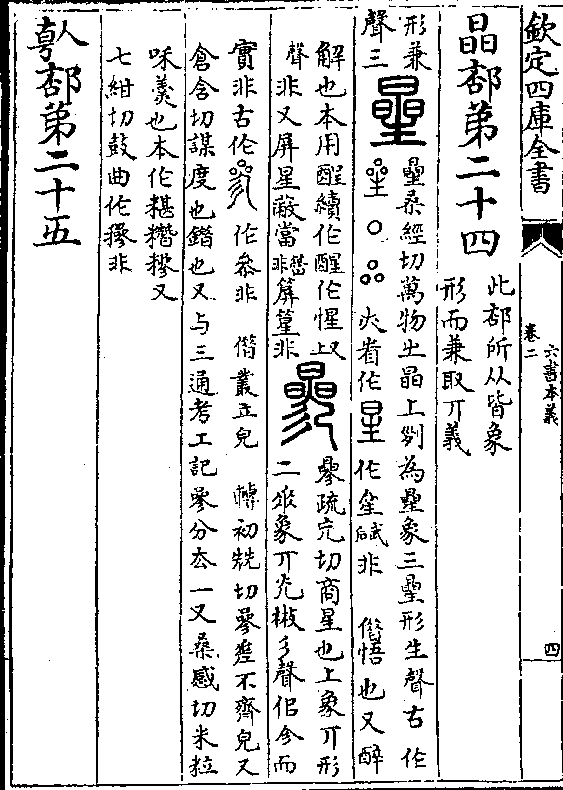 欽定四庫全書
六書本義
卷二
四
晶部第二十四
此部所从皆象
形而兼取丌義
形兼
聲三
曐桑經切萬物㞢晶上𠛱為曐象三曐形生聲古作
火省作星作㽒非 偕悟也又醉
解也本用醒續作醒作惺
聲非又屏星蔽當非簈篂非
曑疏宂切商星也上象丌形
二象丌光㐱聲但今而
實非古作 作叅非 偕叢立皃 轉初兟切曑差不齊皃又
倉含切謀度也錯也又与三通考工記曑分去一又桑感切米粒
咊羹也本作糂糣糝又
七紺切鼓曲作摻非
部第二十五